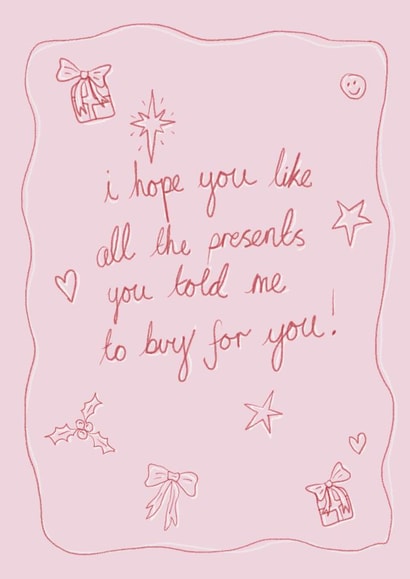 i hope you like
all the presents
you told me
to buy for you!